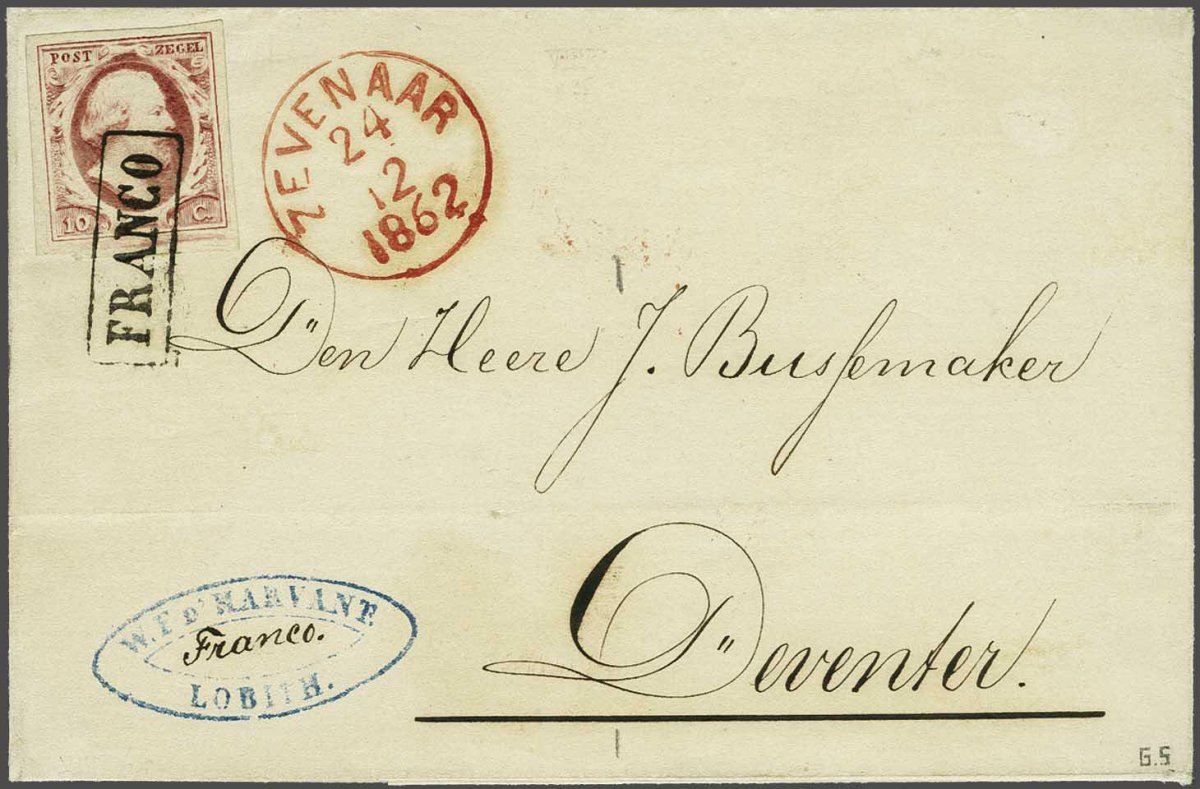 POST ZEGEL
10 C.
FRANCO
ZEVENAAR
24
12
1862
Den Heere J. Bussemaker
Deventer.
W. F. D' MARVANT.
Franco.
LOBITH.
G.S